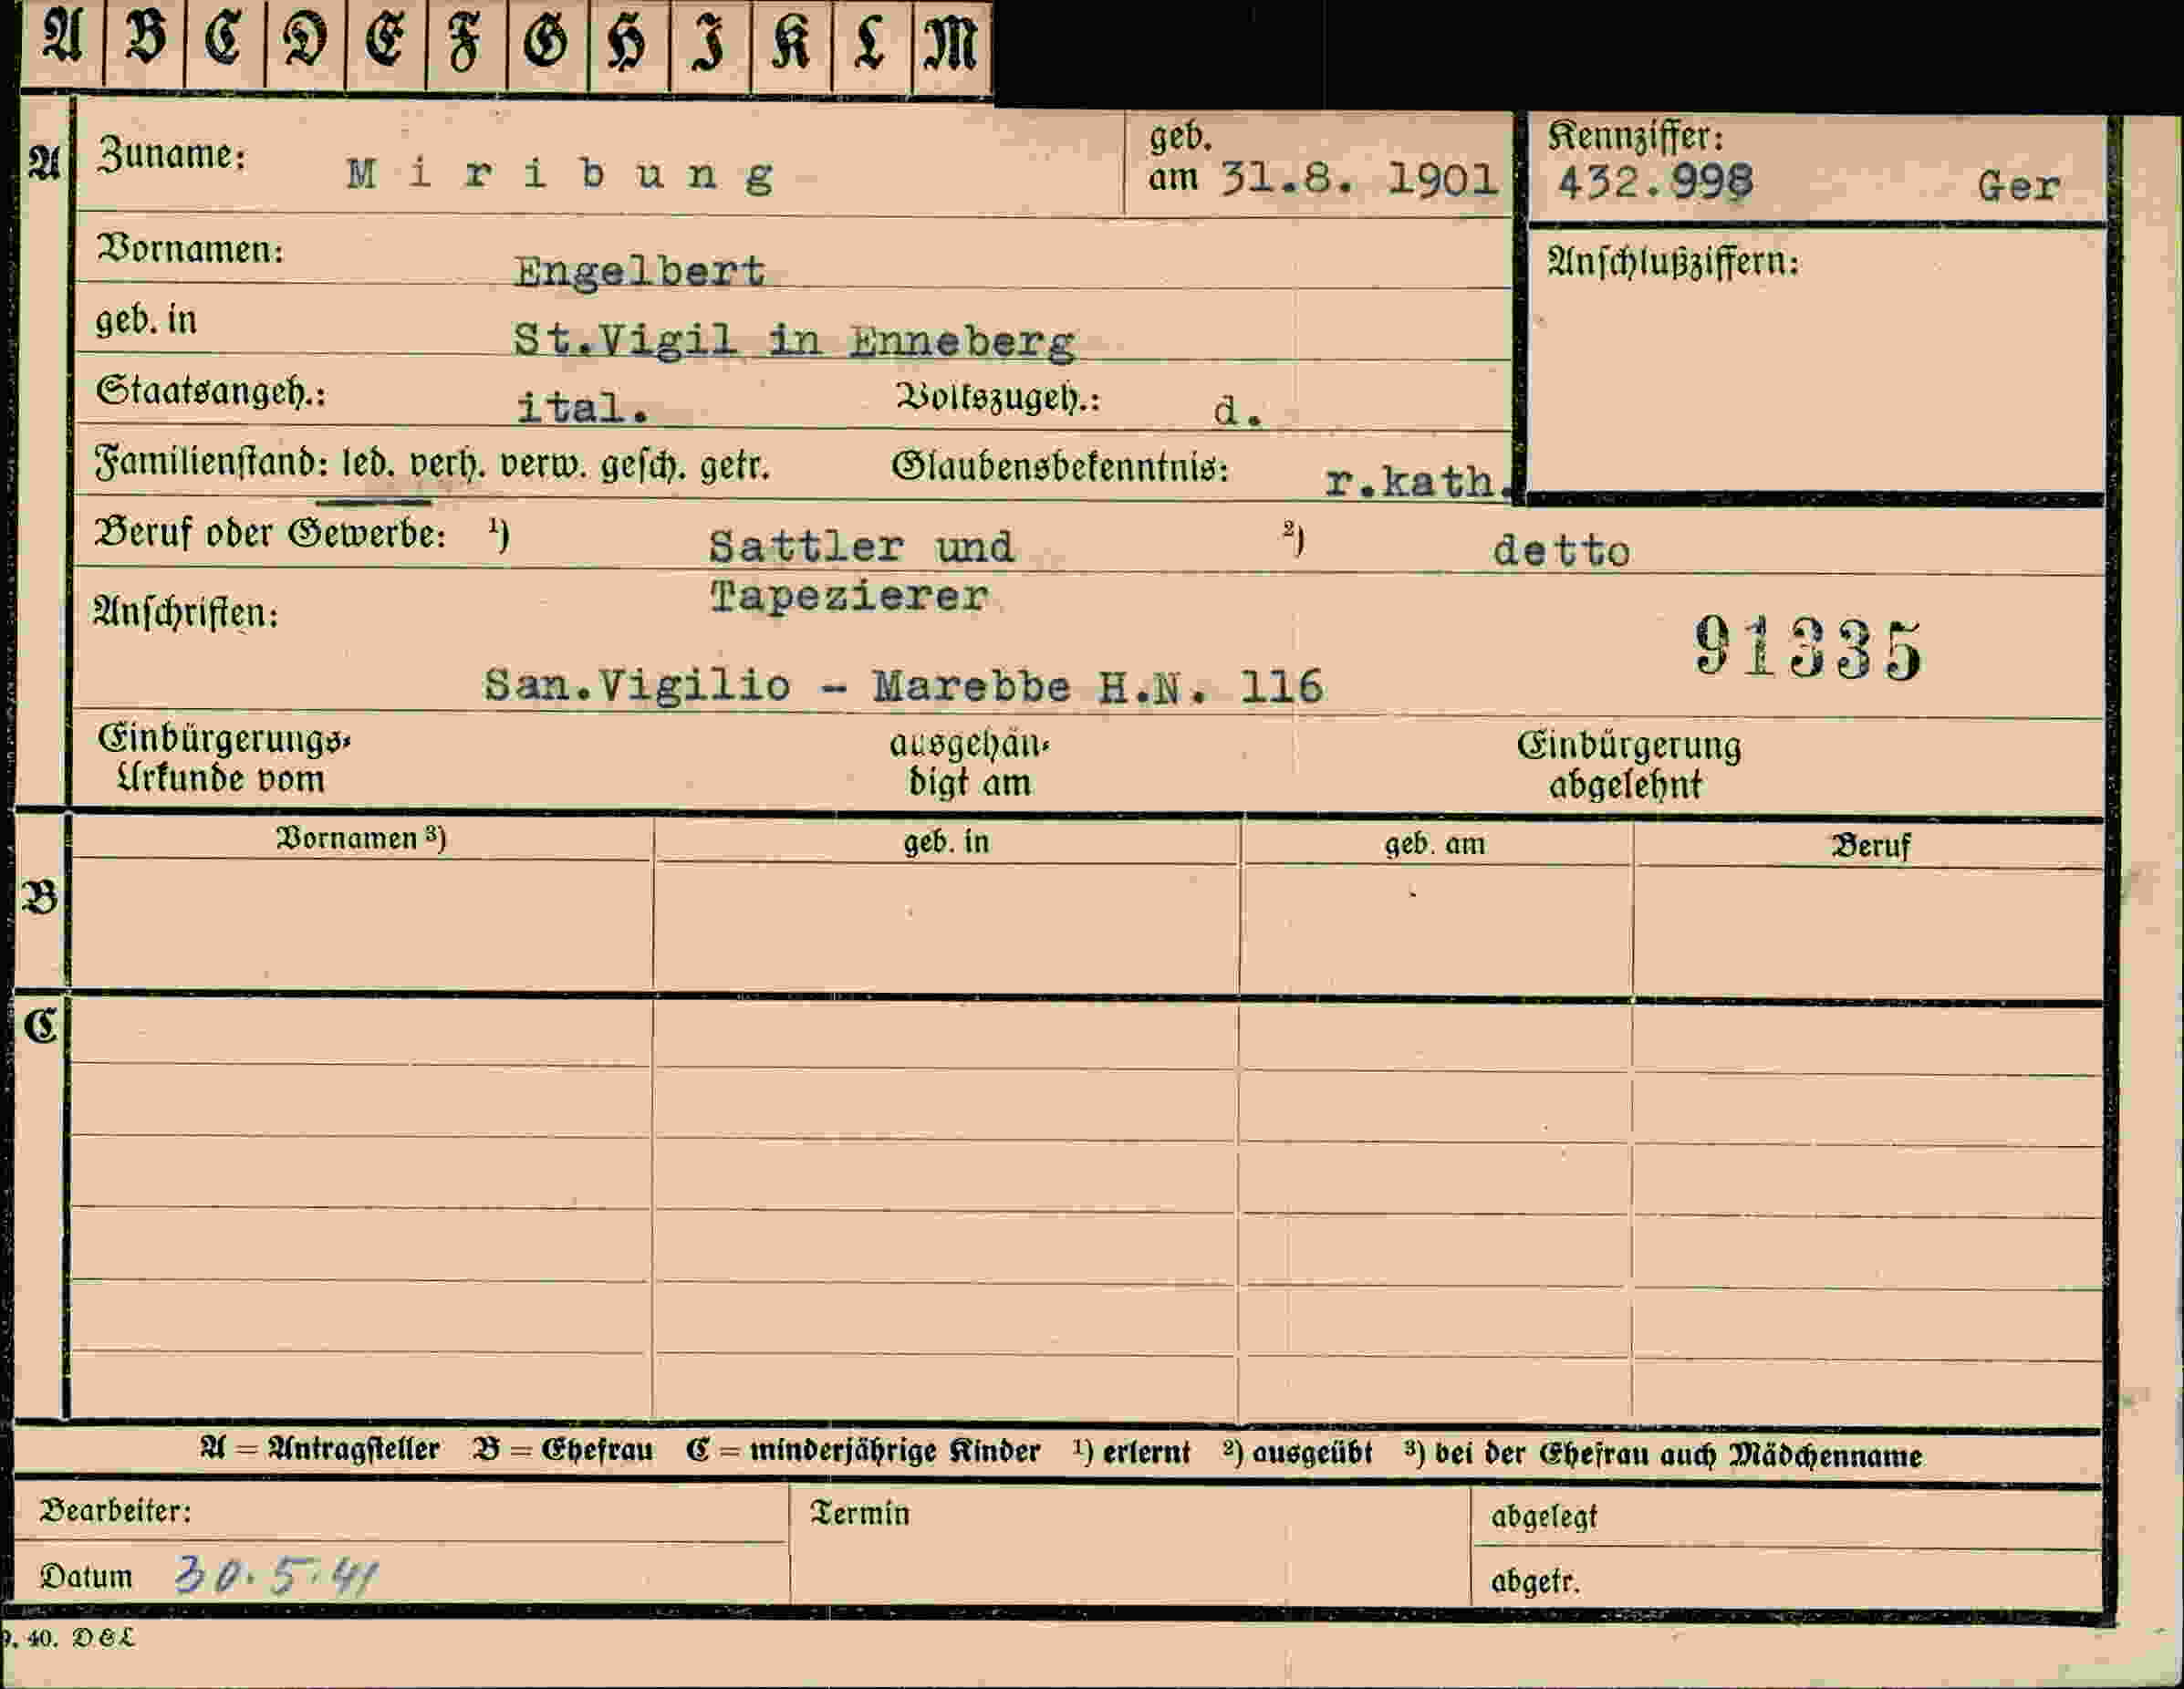 A B C D E F G H I K L M
A
Zuname: Miribung
geb. am 31.8. 1901
Kennziffer: 432.998 Ger
Vornamen: Engelbert
Anschlußziffern:
geb. in St.Vigil in Enneberg
Staatsangeh.: ital. Volkszugeh.: d.
Familienstand: led. verh. verw. gesch. getr. Glaubensbekenntnis: r.kath.
Beruf oder Gewerbe: ¹) Sattler und ²) detto
Tapezierer
Anschriften:
91335
San.Vigilio - Marebbe H.N. 116
Einbürgerungs- ausgehän- Einbürgerung
Urkunde vom digt am abgelehnt
Vornamen ³) geb. in geb. am Beruf
B
C
A = Antragsteller B = Ehefrau C = minderjährige Kinder ¹) erlernt ²) ausgeübt ³) bei der Ehefrau auch Mädchenname
Bearbeiter: Termin abgelegt
Datum 30.5.41 abgetr.
9. 40. D&L